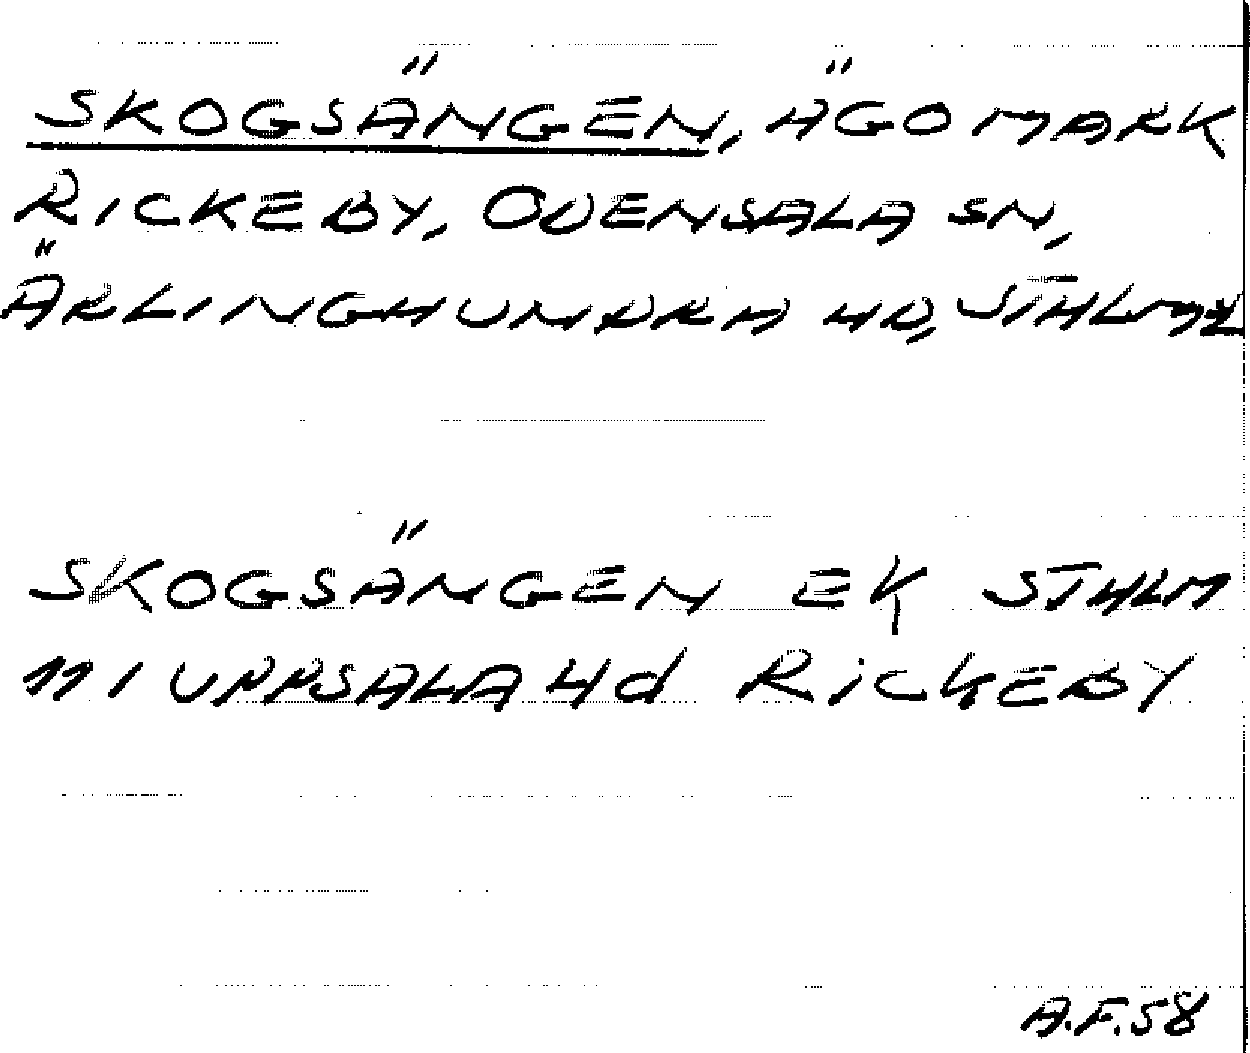 SKOGSÄNGEN, ÄGOMARK
RICKEBY, ODENSALA SN,
ÄRLINGHUNDRA HD, STHLMS L
SKOGSÄNGEN EK STHLM
111 UPPSALA Hd RiCKEBY
A.F.58